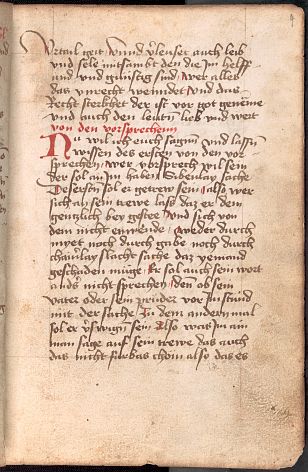 Vrtail geit Vnnd v̾leuset auch leib
vnd sele mitsambt den die Im helff
nt vnd gunstig sind wer alles
das vnrecht vermidet Vnd das
Recht sterkhet der ist vor got geneme
vnd auch den leuten lieb vnd wert
von den vorsprechenn
Nu wil ich euch sagenn vnd lassen
wissen des ersten von den vor
sprechen wer vorsprech wil sein
der sol an Im haben Sibenlay sache
Des ersten sol er getrew sein also wer
sich an sein trewe lasst daz er dem
gentzlich bey gestee Vnd sich von
dem nicht enwende weder durch
myet noch durch gabe noch durch
chainlay slacht sache daz yemand
geschaden muge Er sol auch sein wort
ands nicht sprechen den ob sein
vater oder sein prueder vor Im stund
mit der sache Zu dem andern mal
sol er v̾swigen sein Also was Im ain
man sage auf sein trewe das auch
das nicht furbas chom also das es